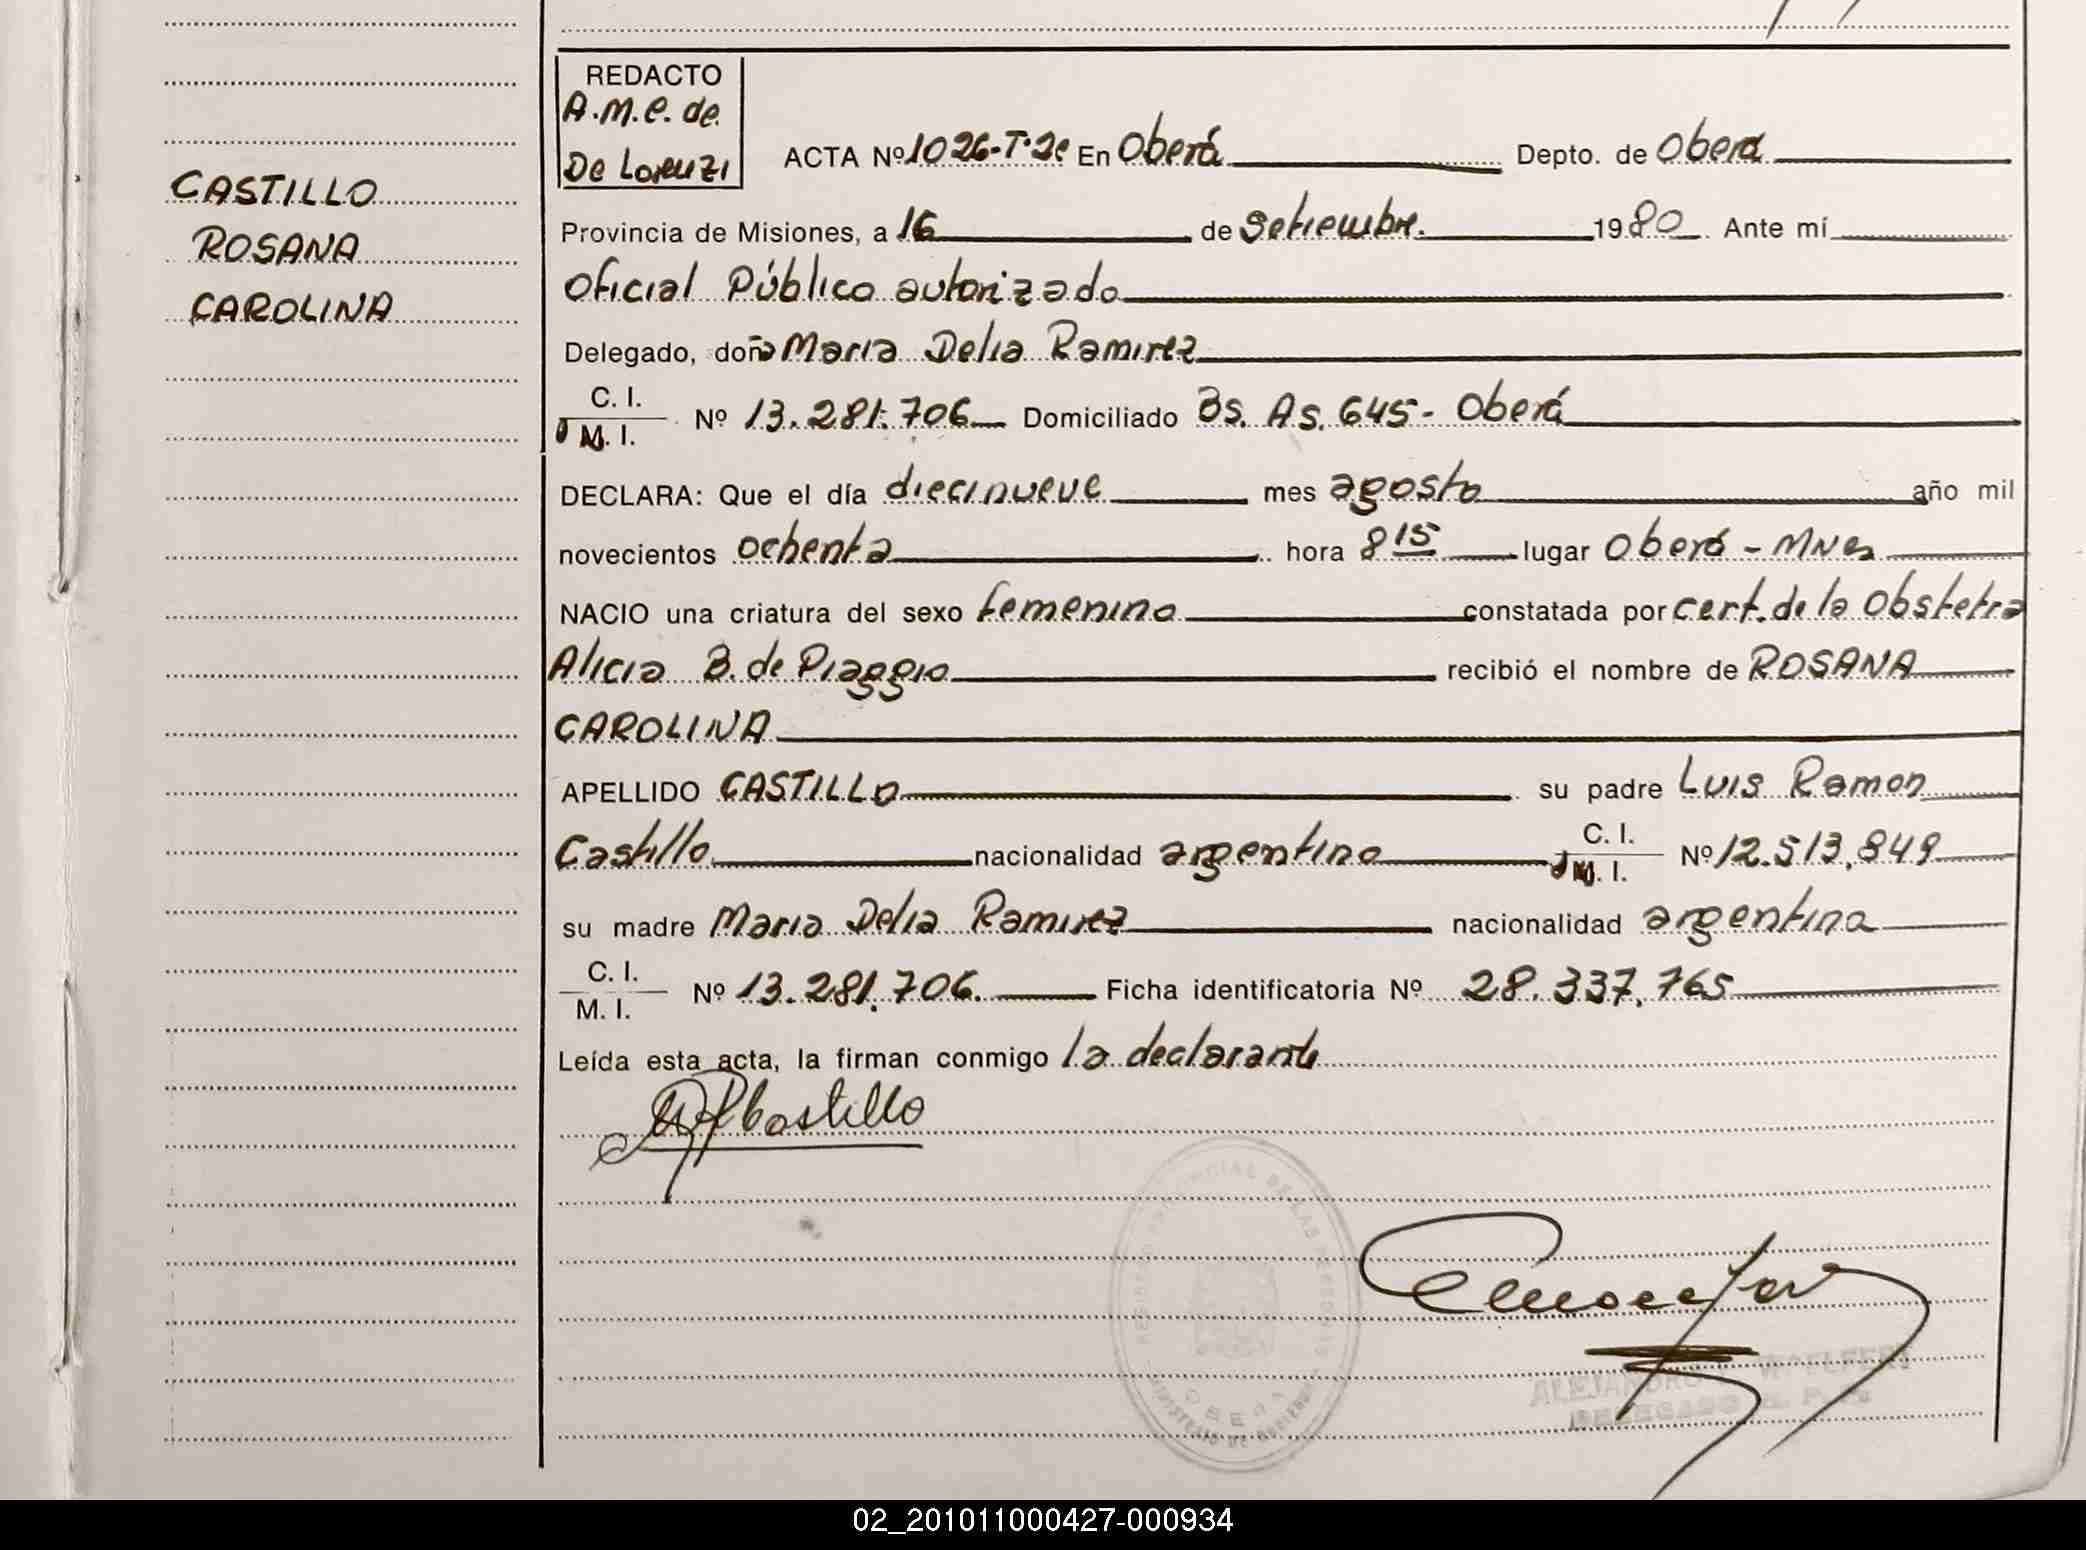 CASTILLO
ROSANA
CAROLINA
REDACTO
A.M.C. de
De Lorenzi
ACTA Nº 1026-T-2º En Oberá Depto. de Oberá
Provincia de Misiones, a 16 de Setiembre. 1980 Ante mí
Oficial Público autorizado
Delegado, doña Maria Delia Ramirez
C. I.
M. I. Nº 13.281.706 Domiciliado Bs. As. 645- Oberá
DECLARA: Que el día diecinueve mes agosto año mil
novecientos ochenta hora 8 15 lugar Oberá - Mnes
NACIO una criatura del sexo femenino constatada por cert. de la Obstetra
Alicia B. de Piaggio recibió el nombre de ROSANA
CAROLINA
APELLIDO CASTILLO su padre Luis Ramon
Castillo nacionalidad argentino C. I.
M. I. Nº 12.513.849
su madre Maria Delia Ramirez nacionalidad argentina
C. I.
M. I. Nº 13.281.706. Ficha identificatoria Nº 28.337.765
Leída esta acta, la firman conmigo la declarante
Castillo
REGISTRO PROVINCIAL DE LAS PERSONAS
OBERA
MINISTERIO DE GOBIERNO
ALEJANDRO
DELEGADO R. P. P.
02_201011000427-000934